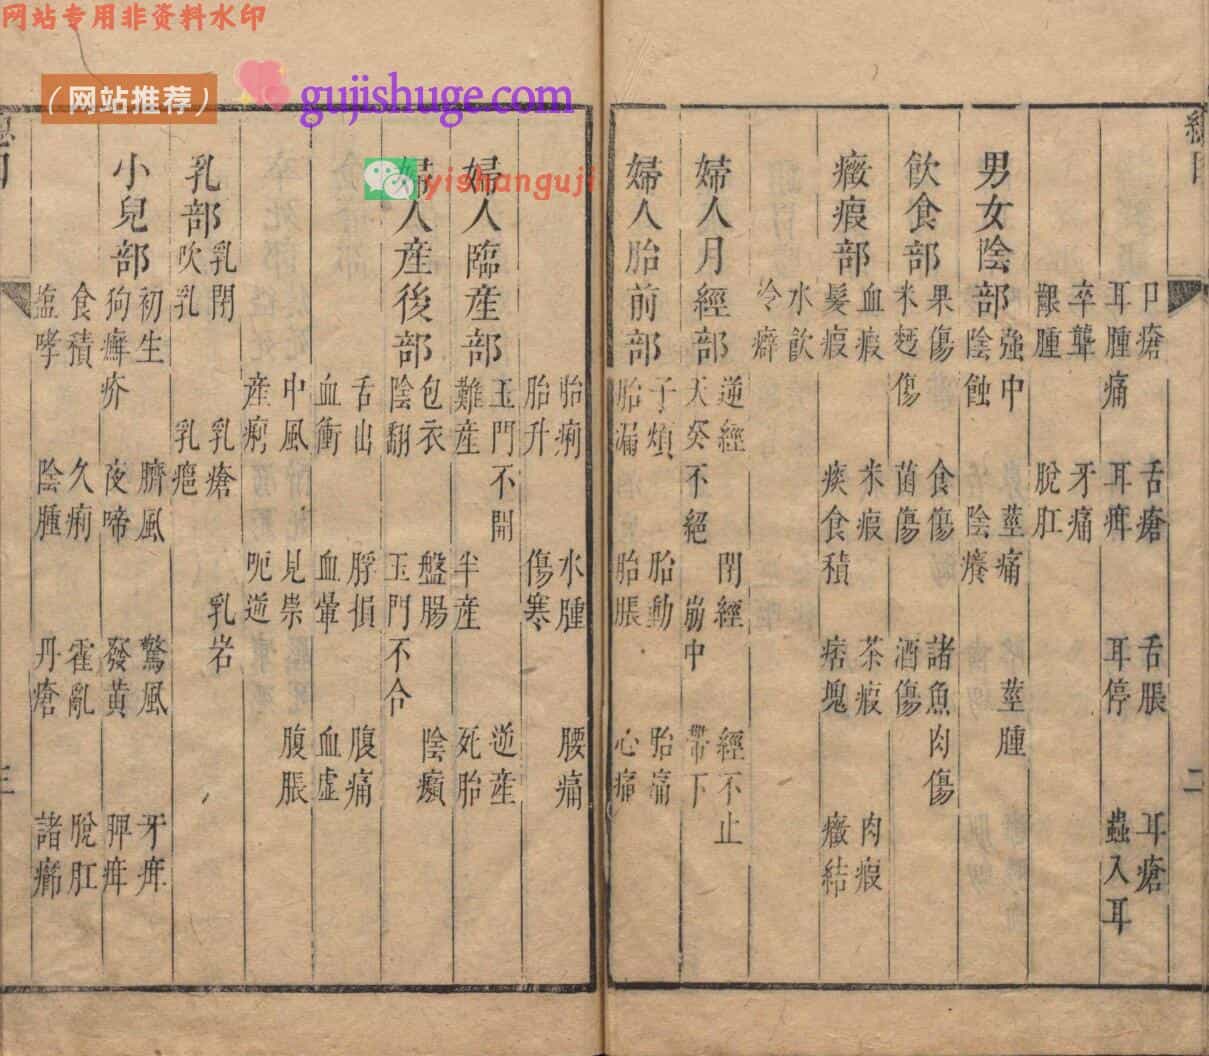 网站专用非资料水印
（网站推荐）
gujishuge.com
yishanguji
口瘡 舌瘡 舌脹 耳瘡
耳腫痛 耳痺 耳停 蟲入耳
卒聾 牙痛
齦腫 脫肛
男女陰部
強中 莖痛 莖腫
陰蝕 陰癢
飲食部
果傷 食傷 諸魚肉傷
米麵傷 菌傷 酒傷
癥瘕部
血瘕 米瘕 茶瘕 肉瘕
髮瘕 痰食積 痞塊 癥結
水飲
冷癖
婦人月經部
逆經 閉經 經不止
天癸不絕 崩中 帶下
婦人胎前部
子煩 胎動 胎痛
胎漏 胎脹 心痛
二
胎痢 水腫 腰痛
胎升 傷寒
婦人臨産部
玉門不開 逆産
難産 半産 死胎
婦人産後部
包衣 盤腸 陰㿗
陰翻 玉門不合
舌出 脬損 腹痛
血衝 血暈 血虛
中風 見祟 腹脹
産痢 呃逆
乳部
乳閉 乳瘡 乳岩
吹乳 乳疤
小兒部
初生 臍風 驚風 牙痺
狗癬疥 夜啼 發黃 胛痺
食積 久痢 霍亂 脫肛
塩哮 陰腫 丹瘡 諸癇
三